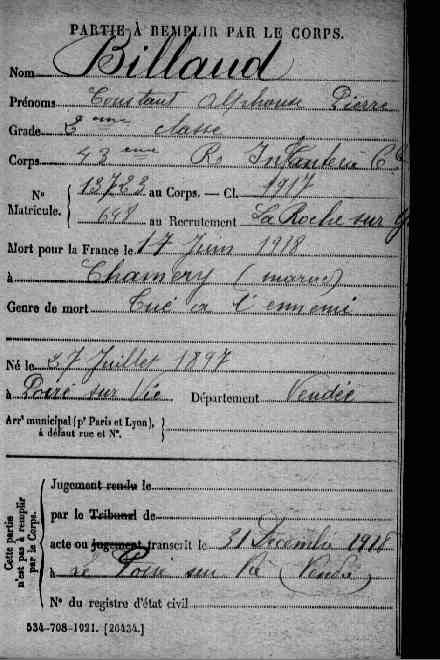 PARTIE À REMPLIR PAR LE CORPS.
Nom Billaud
Prénoms Constant Alphonse Pierre
Grade 2eme classe
Corps 43eme Rt Infanterie Cle
Nº Matricule. 13723 au Corps. — Cl. 1917
698 au Recrutement La Roche sur Y
Mort pour la France le 17 Juin 1918
à Chamery (marne)
Genre de mort Tué à l'ennemi
Né le 27 Juillet 1897
à Poiré sur Vie Département Vendée
Arrt municipal (pr Paris et Lyon),
à défaut rue et Nº.
Cette partie n'est pas à remplir par le Corps.
Jugement rendu le
par le Tribunal de
acte ou jugement transcrit le 31 Décembre 1918
à Le Poiré sur Vie (Vendée)
Nº du registre d'état civil
534-708-1921. [26434.]